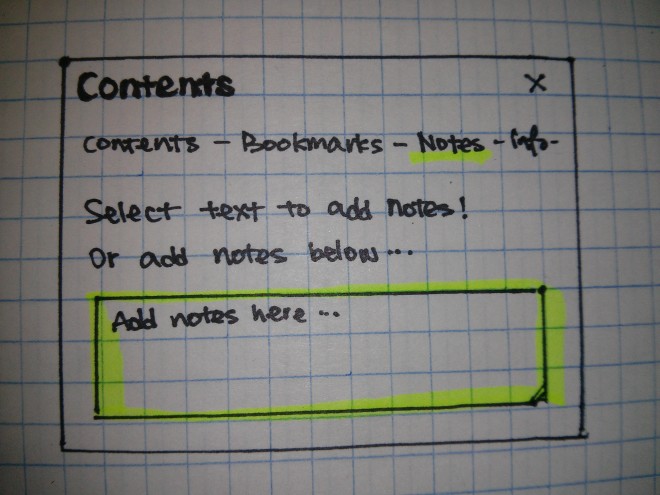 Contents X
Contents - Bookmarks - Notes - Info-
Select text to add notes!
Or add notes below...
Add notes here ...